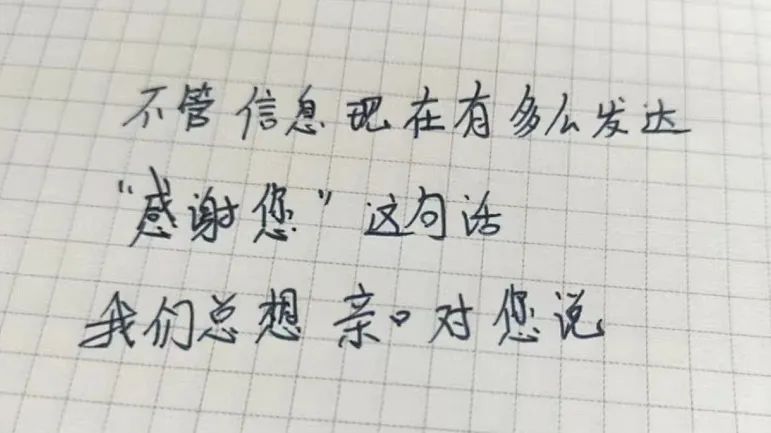 不管信息现在有多么发达
“感谢您”这句话
我们总想亲口对您说